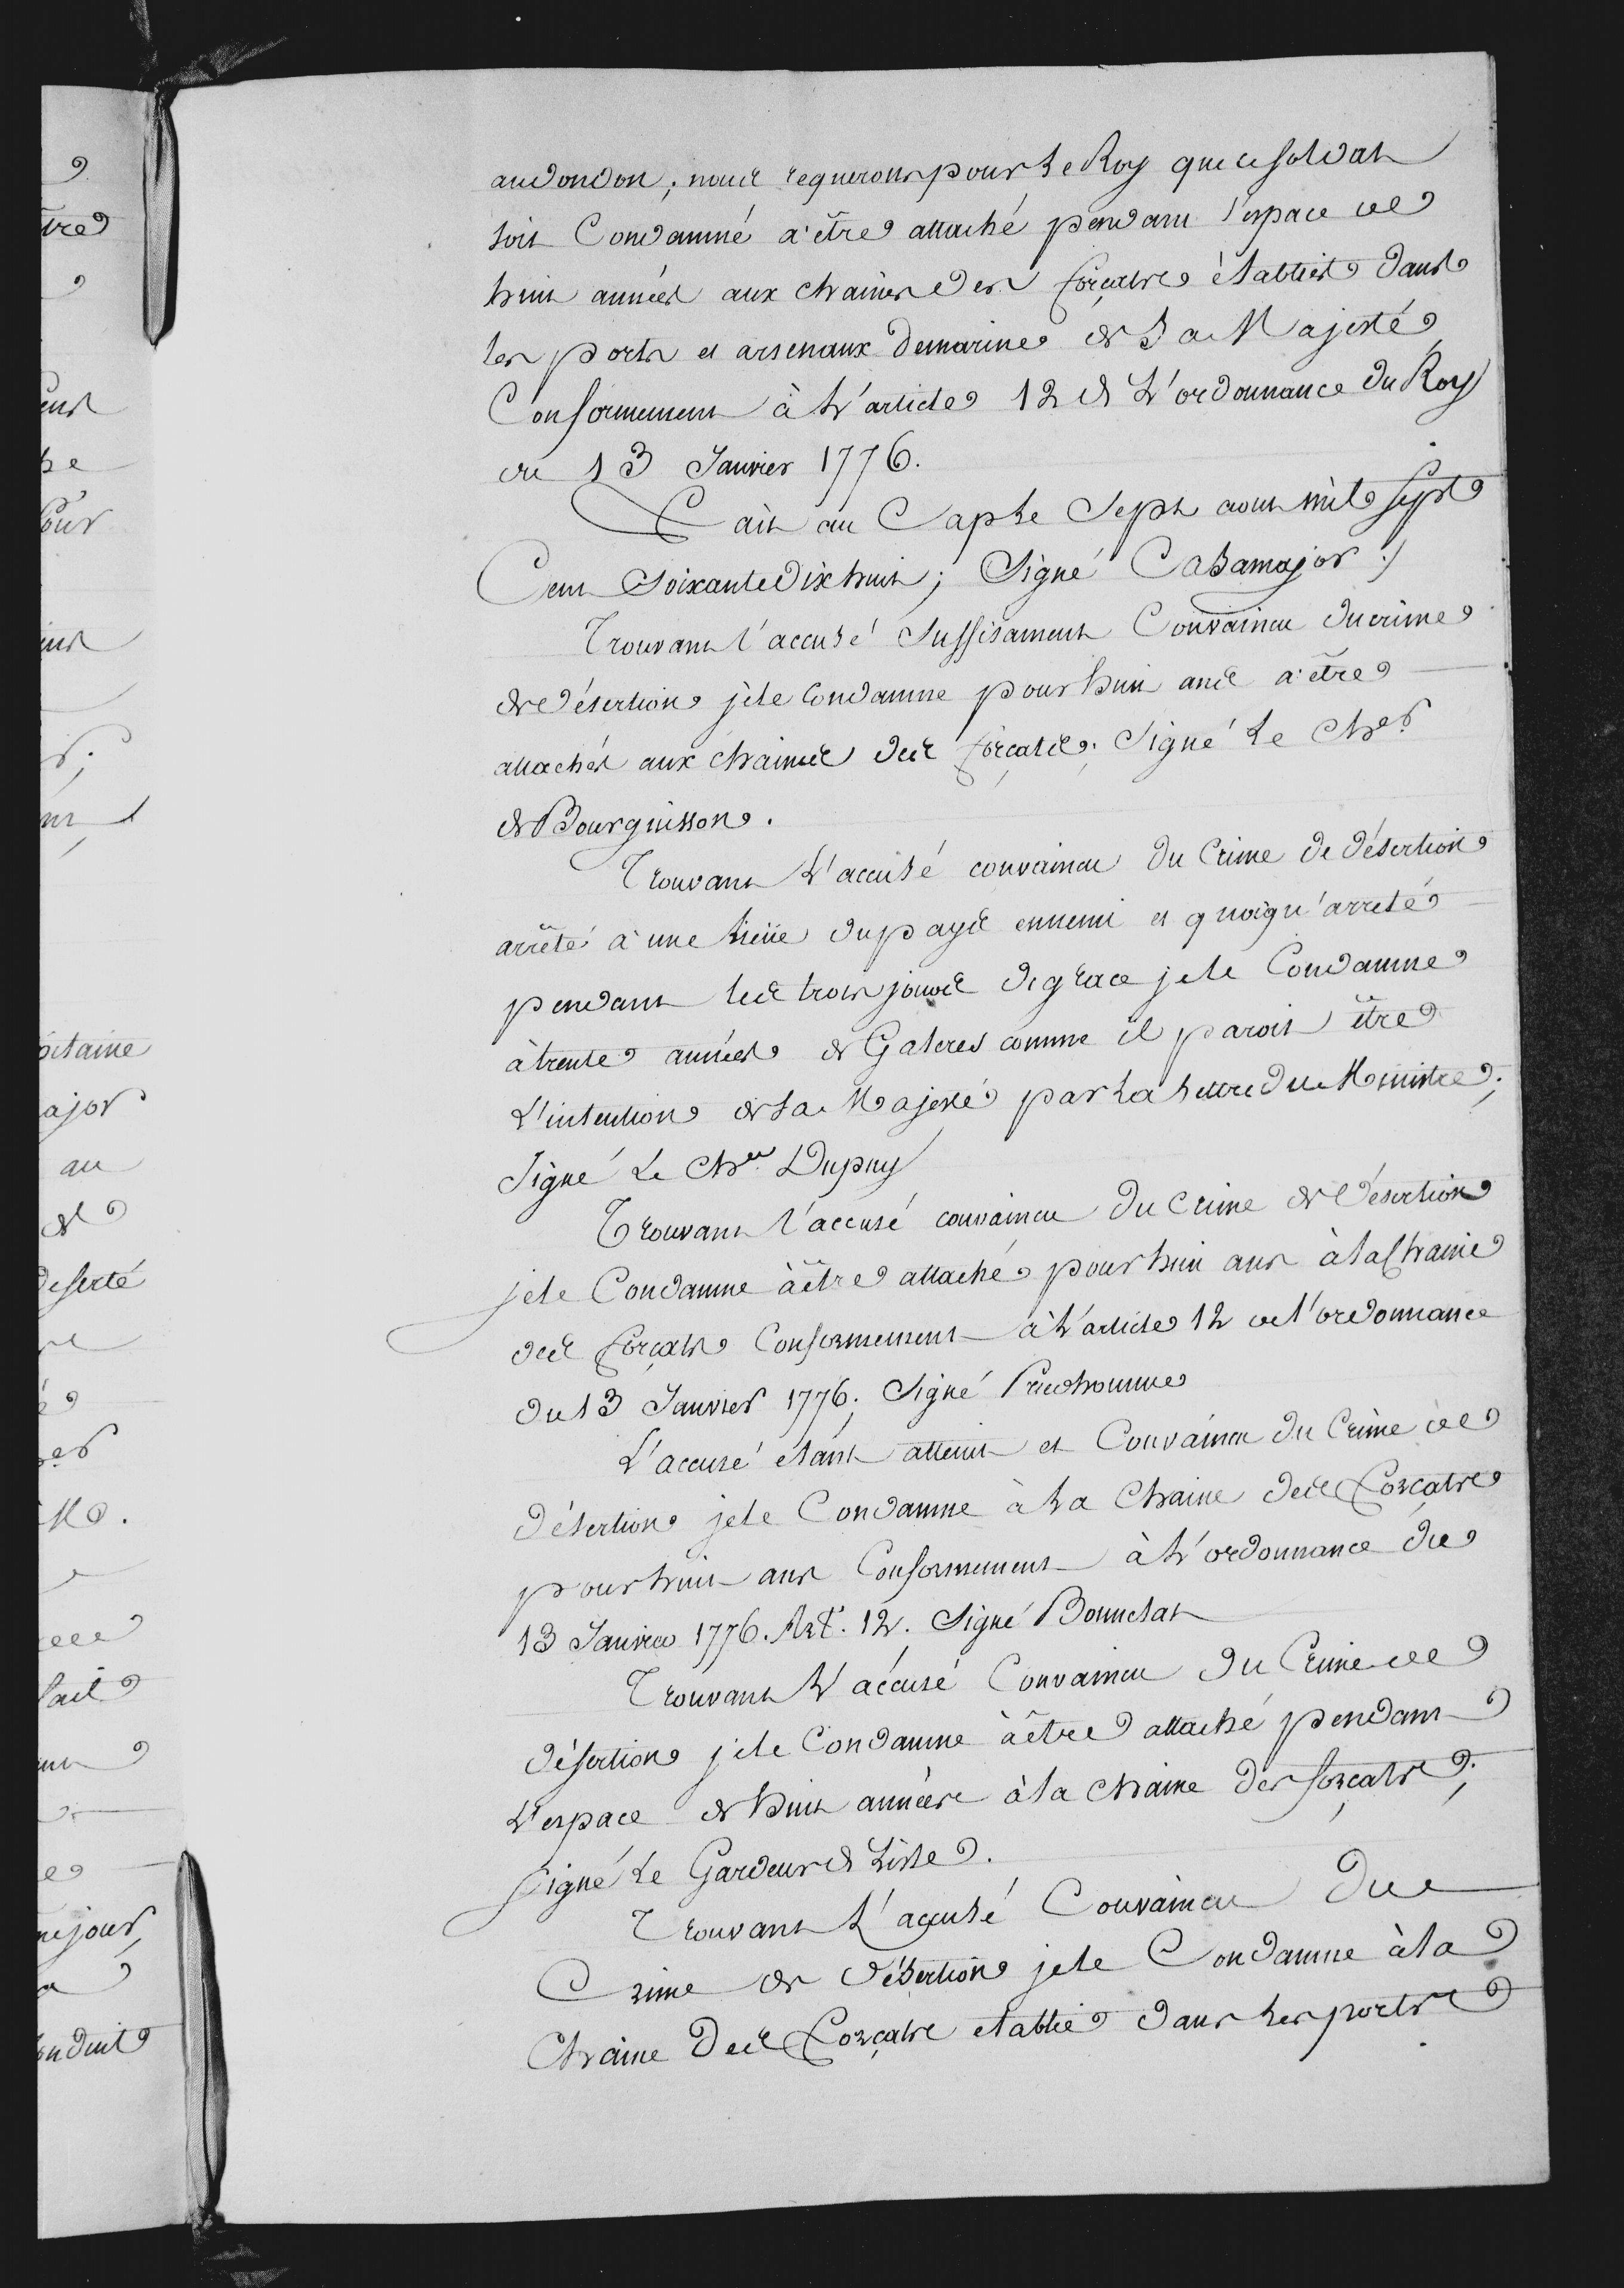 au dondon; nous requerons pour Le Roy que ce soldat
soit Condamné a être attaché pendant l'espace de
huit années aux chaines des forçats établies dans
les ports et arsenaux de marine de Sa Majesté
Conformement à L'article 12 de L'ordonnance du Roy
du 13 Janvier 1776.
Fait au Cap Le Sept aout mil sept
Cent Soixante dix huit; Signé Casamajor ./
Trouvant l'accusé suffisament Convaincu du crime
de désertion je le Condamne pour huit ans a être
attachés aux chaines des forçats; Signé Le Cher
de Bourguisson.
Trouvant L'accusé convaincu du Crime de désertion
arrêté à une lieüe du pays ennemi et quoiqu'arreté
pendant les trois jours de grace je le Condamne
à trente années de Galeres comme il paroit être
L'intention de Sa Majesté par La Lettre du Ministre;
Signé Le Cher Dupuy
Trouvant l'accusé convaincu du Crime de désertion
je le Condamne à être attaché pour huit ans à la Chaine
des forçats Conformement à L'article 12 de l'ordonnance
du 13 Janvier 1776; Signé Prudhomme
L'accusé étant atteint et Convaincu du Crime de
désertion je le Condamne à La Chaine des Forçats
pour huit ans Conformement à L'ordonnance du
13 Janvier 1776. Art. 12. Signé Bonnelat
Trouvant L'accusé Convaincu du Crime de
désertion je le Condamne à être attaché pendant
L'espace de huit années à la chaine des forçats;
Signé Le Gardeur de Lisle.
Trouvant L'accusé Convaincu du
Crime de désertion je le Condamne à la
Chaine des Forçats etablie dans Les ports